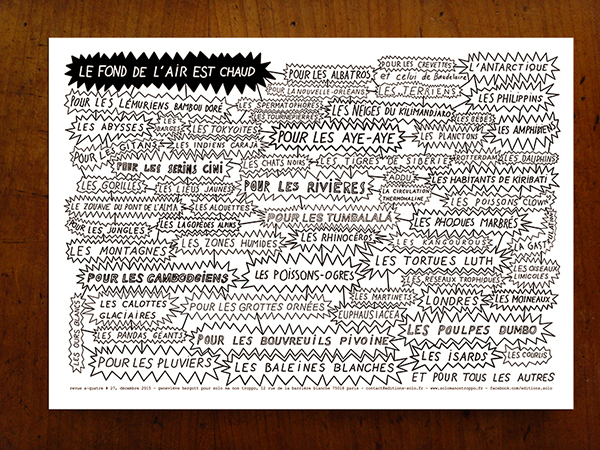 LE FOND DE L'AIR EST CHAUD
POUR LES ALBATROS
POUR LES CREVETTES
et celui de Baudelaire
L'ANTARCTIQUE
POUR LA NOUVELLE-ORLÉANS
LES TERRIENS
LES PHILIPPINS
POUR LES LÉMURIENS BAMBOU DORÉ
LES SPERMATOPHORES
LES TOURNEPIERRES
LES NEIGES DU KILIMANDJARO
LES BÉBÉS
LES ABYSSES
LES BARGES
LES TOKYOÏTES
POUR LES AYE-AYE
LES PLANCTONS
LES AMPHIBIENS
POUR LES GITANS
LES INDIENS CARAJA
POUR LES SERINS CINI
LES CHATS NOIRS
LES TIGRES DE SIBÉRIE
ROTTERDAM
LES DAUPHINS
LES GORILLES
LES LIEUS JAUNES
POUR LES RIVIÈRES
LA CIRCULATION
THERMOHALINE
LES HABITANTS DE KIRIBATI
LES POISSONS CLOWN
LE ZOUAVE DU PONT DE L'ALMA
LES ALOUETTES
POUR LES TUMBALALÁ
LES PHOQUES MARBRÉS
POUR LES JUNGLES
LES LAGOPÈDES ALPINS
LES MONTAGNES
LES ZONES HUMIDES
LES RHINOCÉROS
LES KANGOUROUS
LES TORTUES LUTH
LES OISEAUX
LIMICOLES
POUR LES CAMBODGIENS
LES POISSONS-OGRES
LES RÉSEAUX TROPHIQUES
LES CALOTTES
GLACIAIRES
POUR LES GROTTES ORNÉES
LES MARTINETS
EUPHAUSIACEA
LONDRES
LES MOINEAUX
LES OURS BLANCS
LES PANDAS GÉANTS
POUR LES BOUVREUILS PIVOINE
LES POULPES DUMBO
POUR LES PLUVIERS
LES BALEINES BLANCHES
LES ISARDS
LES COURLIS
ET POUR TOUS LES AUTRES
revue a-quatre # 27, décembre 2015 - geneviève bergott pour solo ma non troppo, 12 rue de la barrière blanche 75018 paris - contact@editions-solo.fr - www.solomanontroppo.fr - facebook.com/editions.solo